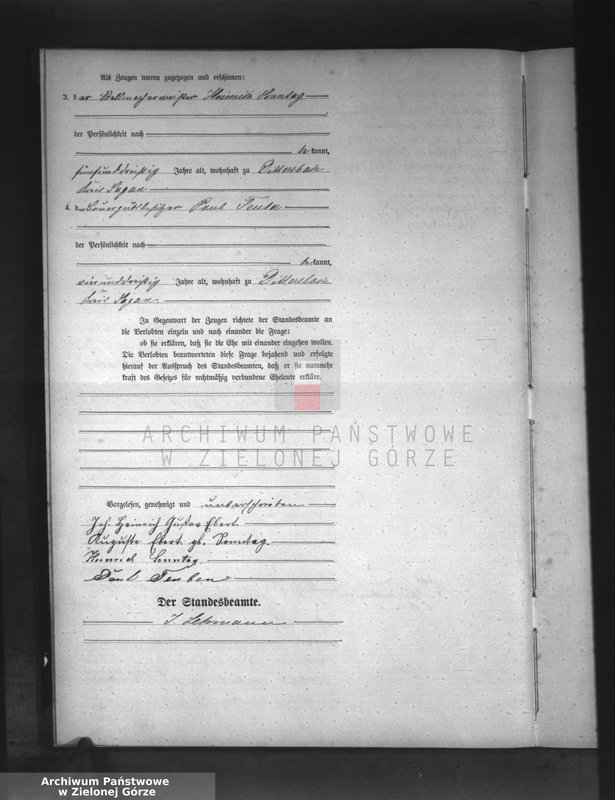 Als Zeugen waren zugezogen und erschienen:
3. der Stellmachermeister Heinrich Sonntag
der Persönlichkeit nach
be kannt,
fünfunddreißig Jahre alt, wohnhaft zu Dittersbach
Kreis Sagan
4. der Bauergutsbesitzer Paul
der Persönlichkeit nach
be kannt,
vierunddreißig Jahre alt, wohnhaft zu Dittersbach
Kreis Sagan
In Gegenwart der Zeugen richtete der Standesbeamte an
die Verlobten einzeln und nach einander die Frage:
ob sie erklären, daß sie die Ehe mit einander eingehen wollen.
Die Verlobten beantworteten diese Frage bejahend und erfolgte
hierauf der Ausspruch des Standesbeamten, daß er sie nunmehr
kraft des Gesetzes für rechtmäßig verbundene Eheleute erkläre.
ARCHIWUM PAŃSTWOWE
W ZIELONEJ GÓRZE
Vorgelesen, genehmigt und unterschrieben
Joh. Heinrich Gustav Ebert.
Auguste Ebert gb. Sonntag.
Heinrich Sonntag
Paul
Der Standesbeamte.
Lehmann
Archiwum Państwowe
w Zielonej Górze